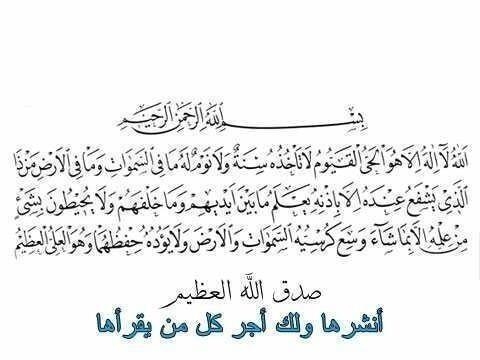 بسم الله الرحمن الرحيم
الله لا إله إلا هو الحي القيوم لا تأخذه سنة ولا نوم له ما في السموات وما في الأرض من ذا
الذي يشفع عنده إلا بإذنه يعلم ما بين أيديهم وما خلفهم ولا يحيطون بشيء
من علمه إلا بما شاء وسع كرسيه السموات والأرض ولا يؤده حفظهما وهو العلي العظيم
صدق الله العظيم
أنشرها ولك أجر كل من يقرأها